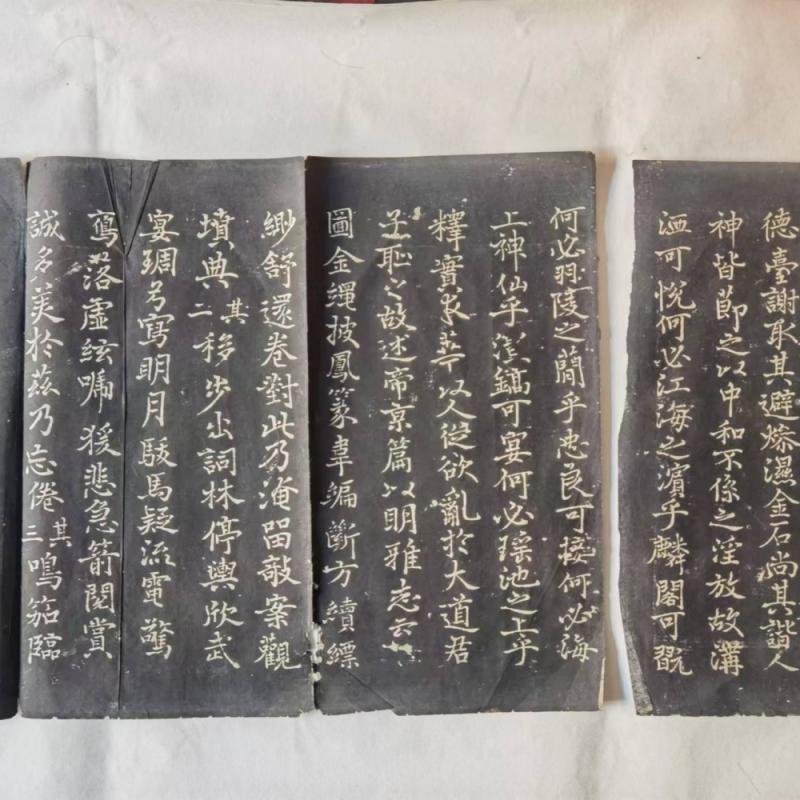 德臺謝取其避燥濕金石尚其諧人
神皆節之以中和不係之淫放故溝
洫可悅何必江海之濱乎麟閣可翫
何必兩陵之間乎忠良可接何必海
上神仙乎豐鎬可宴何必瑤池之上乎
釋實求華以人從欲亂於大道君
子恥之故述帝京篇以明雅志云
圖金繩披鳳篆韋編斷方續縹
緲舒還卷對此乃淹留欹案觀
墳典其二移步出詞林停輿欣武
宴琱弓寫明月駿馬疑流電驚
鴈落虛絃嗁猨悲急箭閱賞
誠多美於茲乃忘倦其三鳴笳臨